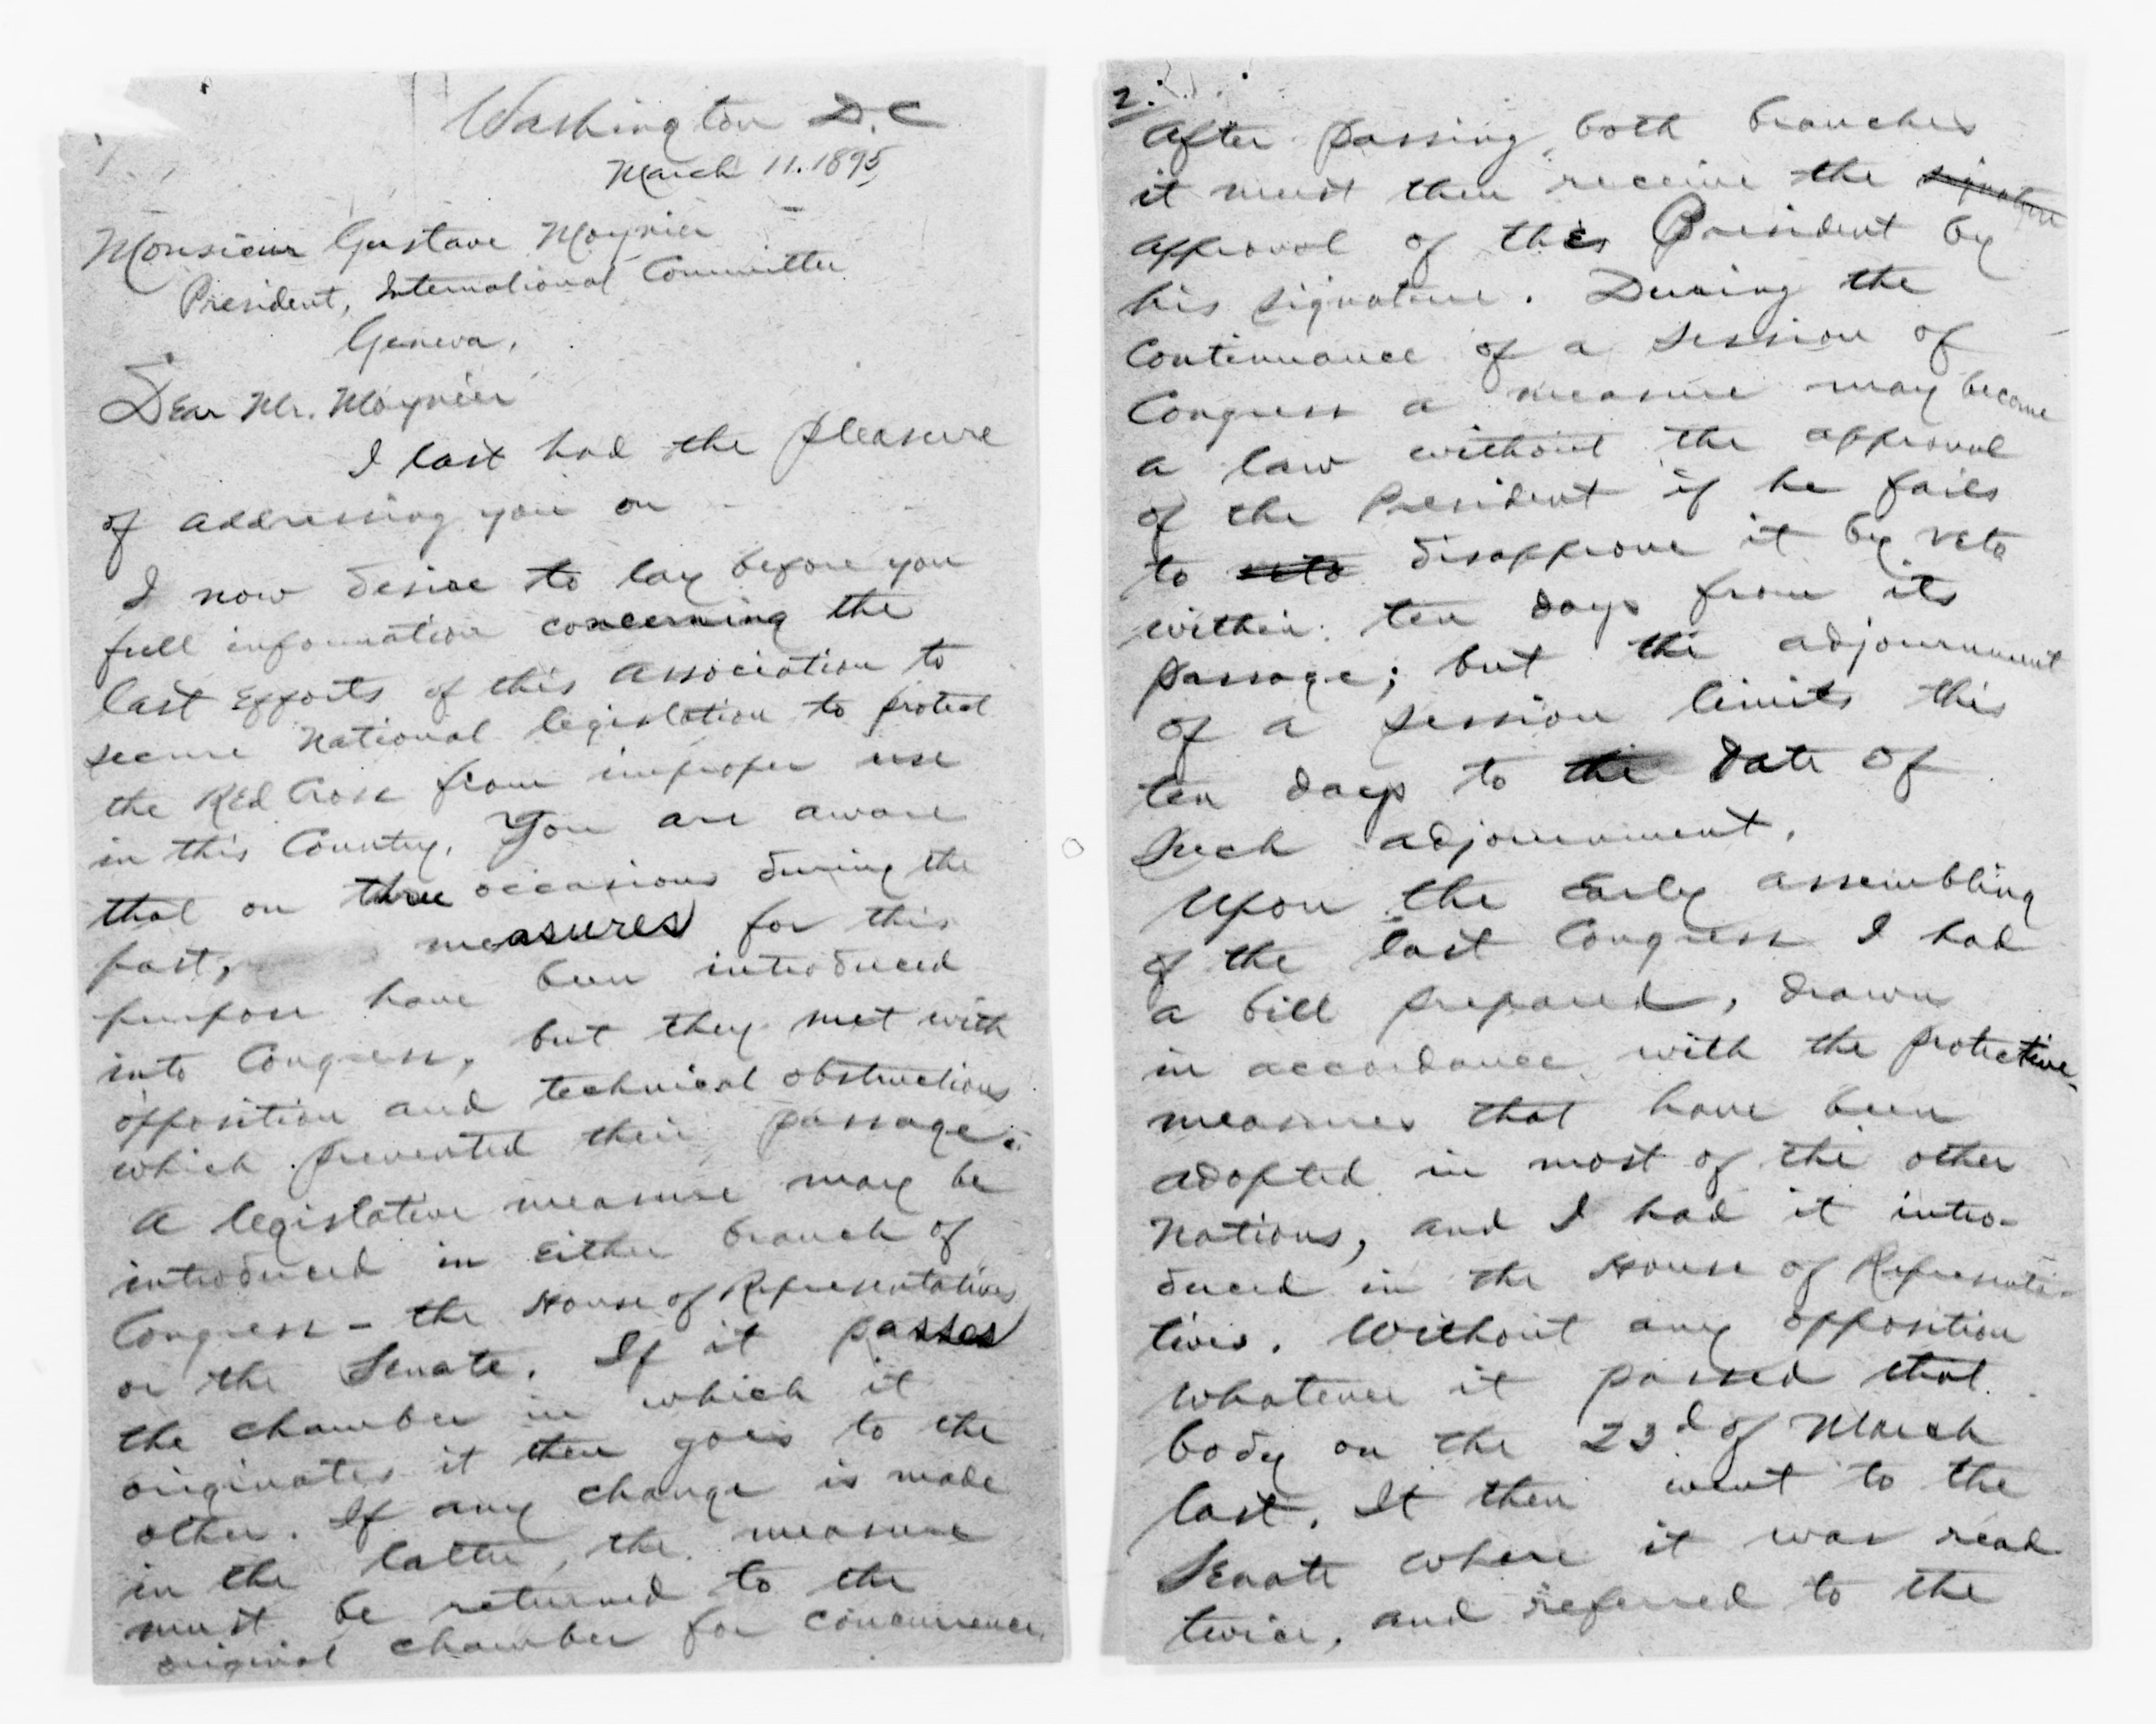 Washington D.C
March 11. 1895
Monsieur Gustave Moynier
President, International Committee
Geneva,
Dear Mr. Moynier
I last had the pleasure
of addressing you on
I now desire to lay before you
full information concerning the
last Efforts of this Association to
secure National legislation to protect
the REd Cross from improper use
in this Country. You are aware
that on three occasions during the
past, measures for this
purpose have been introduced
into Congress, but they met with
opposition and technical obstructions
which prevented their passage.
A legislative measure may be
introduced in Either branch of
Congress – the House of Representatives
or the Senate. If it passes
the chamber in which it
originates it then goes to the
other. If any change is made
in the latter, the measure
must be returned to the
original chamber for concurrence.
2.
After passing both branches
it must then receive the signature
approval of the President by
his signature. During the
Continuance of a Session of
Congress a measure may become
a law without the approval
of the President if he fails
to veto disapprove it by veto
within ten days from its
passage; but the adjournment
of a session limits this
ten days to the date of
Such adjournment.
Upon the Early assembling
of the last Congress I had
a bill prepared, drawn
in accordance with the protective
measures that have been
adopted in most of the other
Nations, and I had it intro-
duced in the House of Representa-
tives. Without any opposition
whatever it passed that
body on the 23d of March
last. It then went to the
Senate where it was read
twice, and referred to the